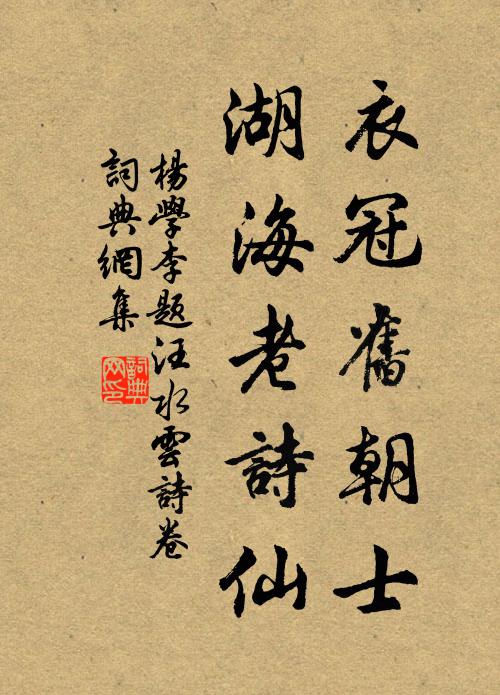 衣冠舊朝士
湖海老詩仙
楊學李題汪水雲詩卷
詞典網集
詞典
网印